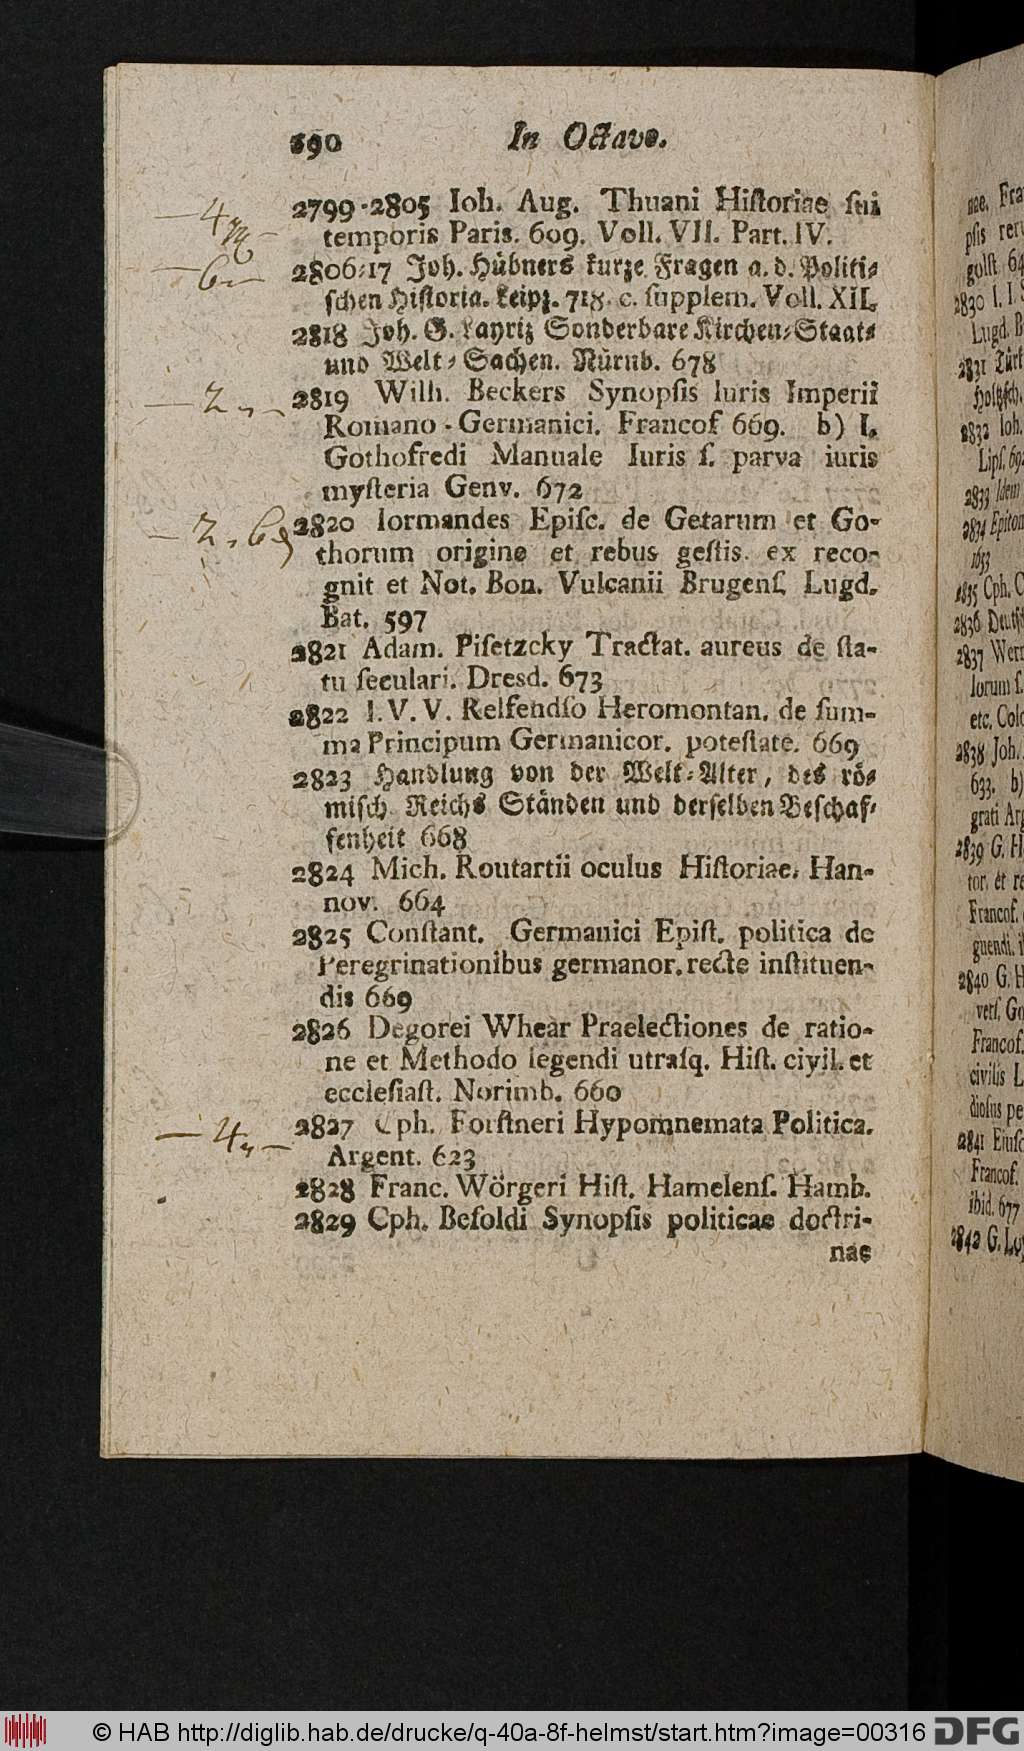 190 In Octavo.
— 4 —
2799-2805 Ioh. Aug. Thuani Hiſtoriae ſui
temporis Paris. 609. Voll. VII. Part. IV.
— 6 —
2806-17 Joh. Hübners kurze Fragen a. d. Politi-
ſchen Hiſtoria. Leipz. 718. c. ſupplem. Voll. XII.
2818 Joh. G. Layriz Sonderbare Kirchen-Staat-
und Welt-Sachen. Nürnb. 678
— 2 —
2819 Wilh. Beckers Synopſis Iuris Imperii
Romano-Germanici. Francof 669. b) I.
Gothofredi Manuale Iuris ſ. parva iuris
myſteria Genv. 672
— 2 - 6
2820 Iormandes Epiſc. de Getarum et Go-
thorum origine et rebus geſtis ex reco-
gnit et Not. Bon. Vulcanii Brugenſ. Lugd.
Bat. 597
2821 Adam. Piſetzcky Tractat. aureus de ſta-
tu ſeculari. Dresd. 673
2822 I. V. V. Relfendſo Heromontan. de ſum-
ma Principum Germanicor. poteſtate. 669
2823 Handlung von der Welt-Alter, des rö-
miſch Reichs Ständen und derſelben Beſchaf-
fenheit 668
2824 Mich. Routartii oculus Hiſtoriae. Han-
nov. 664
2825 Conſtant. Germanici Epiſt. politica de
Peregrinationibus germanor. recte inſtituen-
dis 669
2826 Degorei Whear Praelectiones de ratio-
ne et Methodo legendi utraſq. Hiſt. civil. et
eccleſiaſt. Norimb. 660
— 4 —
2827 Cph. Forſtneri Hypomnemata Politica.
Argent. 623
2828 Franc. Wörgeri Hiſt. Hamelenſ. Hamb.
2829 Cph. Beſoldi Synopſis politicae doctri-
nae
nae. Fra
pſis reru
golſt 64
2830 I. I. S
Lugd. B
2831 Türk
Holtzſch.
2832 Ioh.
Lipſ. 692
2833 Idem
2834 Epitom
1633
2835 Cph. C
2836 Deutſ
2837 Wern
lorum ſ.
etc. Colo
2838 Joh.
633. b)
grati Arg
2839 G. H
tor. et re
Francof.
guendi. i
2840 G. H
verſ. Go
Francof.
civilis L
dioſus pe
2841 Eiuſd
Francof.
ibid. 677
2842 G. Loy
© HAB http://diglib.hab.de/drucke/q-40a-8f-helmst/start.htm?image=00316 DFG